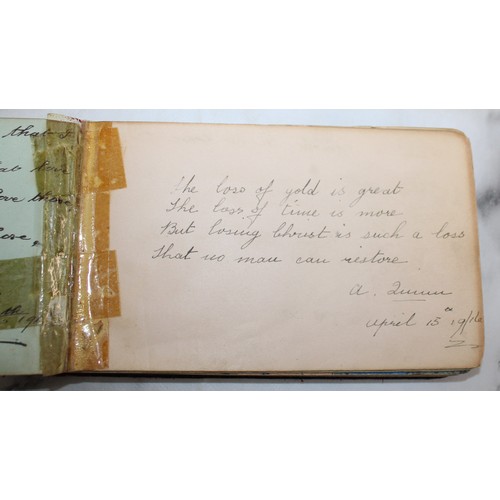 that
love
love.
The loss of gold is great
The loss of time is more
But losing Christ is such a loss
That no man can restore
A.
April 13th 19/16